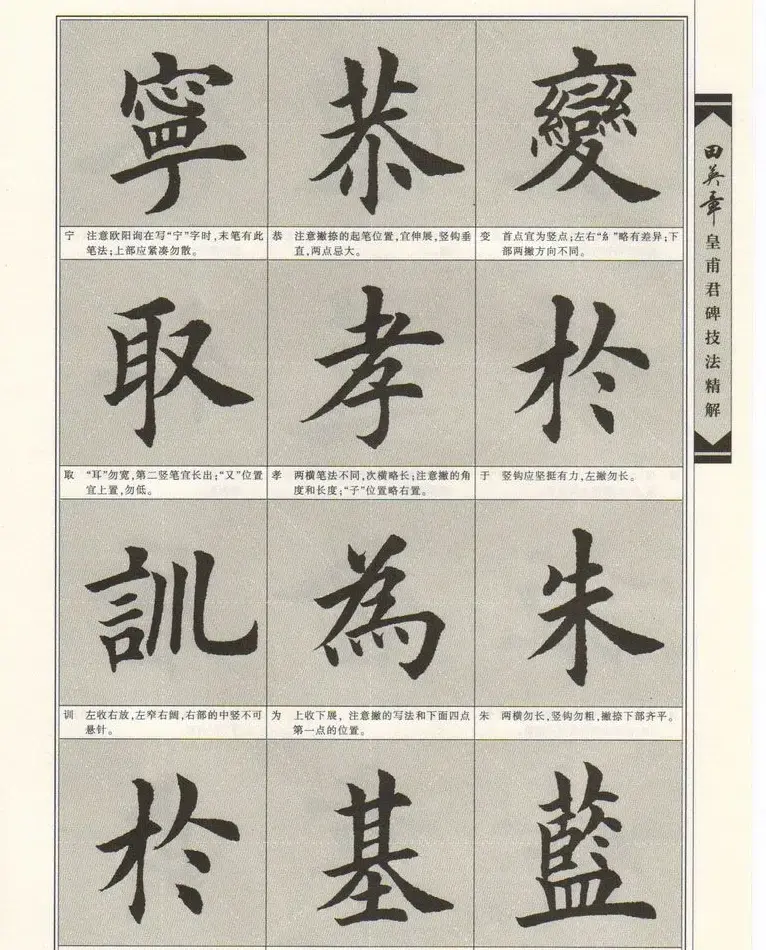 寧
恭
變
宁 注意欧阳询在写“宁”字时，末笔有此
笔法；上部应紧凑勿散。
恭 注意撇捺的起笔位置，宜伸展，竖钩垂
直，两点忌大。
变 首点宜为竖点；左右“糹”略有差异；下
部两撇方向不同。
取
孝
於
取 “耳”勿宽，第二竖笔宜长出；“又”位置
宜上置，勿低。
孝 两横笔法不同，次横略长；注意撇的角
度和长度；“子”位置略右置。
于 竖钩应坚挺有力，左撇勿长。
訓
為
朱
训 左收右放，左窄右阔，右部的中竖不可
悬针。
为 上收下展，注意撇的写法和下面四点
第一点的位置。
朱 两横勿长，竖钩勿粗，撇捺下部齐平。
於
基
藍
田英章皇甫君碑技法精解